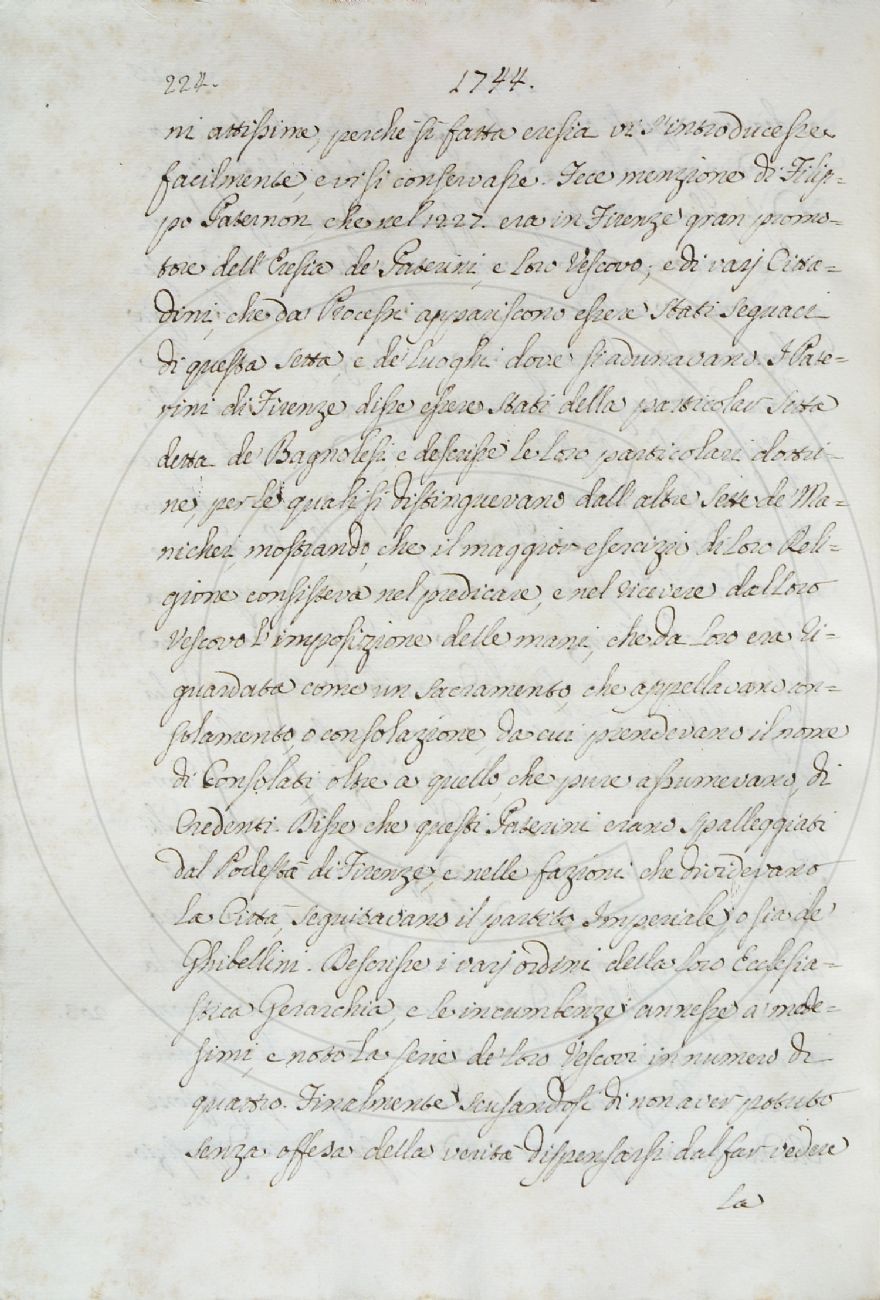 224. 1744.
ni attissime, perche sì fatta eresia vi s'introducesse
facilmente, e vi si conservasse. Fece menzione di Filip-
po Paternon che nel 1227. era in Firenze gran promo-
tore dell'Eresia de' Paterini, e loro Vescovo; e di varj Citta-
dini, che da Processi appariscono essere stati seguaci
di questa setta, e de' luoghi dove si adunavano. I Pate-
rini di Firenze disse essere stati della particolar setta
detta de' Bagnolesi, e descrisse le loro particolari dottri-
ne, per le quali si distinguevano dall'altre sette de' Ma-
nichei, mostrando, che il maggior esercizio di loro Reli-
gione consisteva nel predicare, e nel ricevere dal loro
Vescovo l'imposizione delle mani, che da loro era ri-
guardata come un sacramento, che appellavano con-
solamento, o consolazione, da cui prendevano il nome
di Consolati, oltre a quello, che pure assumevano, di
Credenti. Disse che questi Paterini erano spalleggiati
dal Podestà di Firenze, e nelle fazioni che dividevano
la Città, seguitavano il partito Imperiale, o sia de'
Ghibellini. Descrisse i varj ordini della loro Ecclesia-
stica Gerarchia, e le incumbenze annesse a' mede-
simi, e notò la serie de' loro Vescovi in numero di
quattro. Finalmente scusandosi di non aver potuto
senza offesa della verità dispensarsi dal far vedere
la